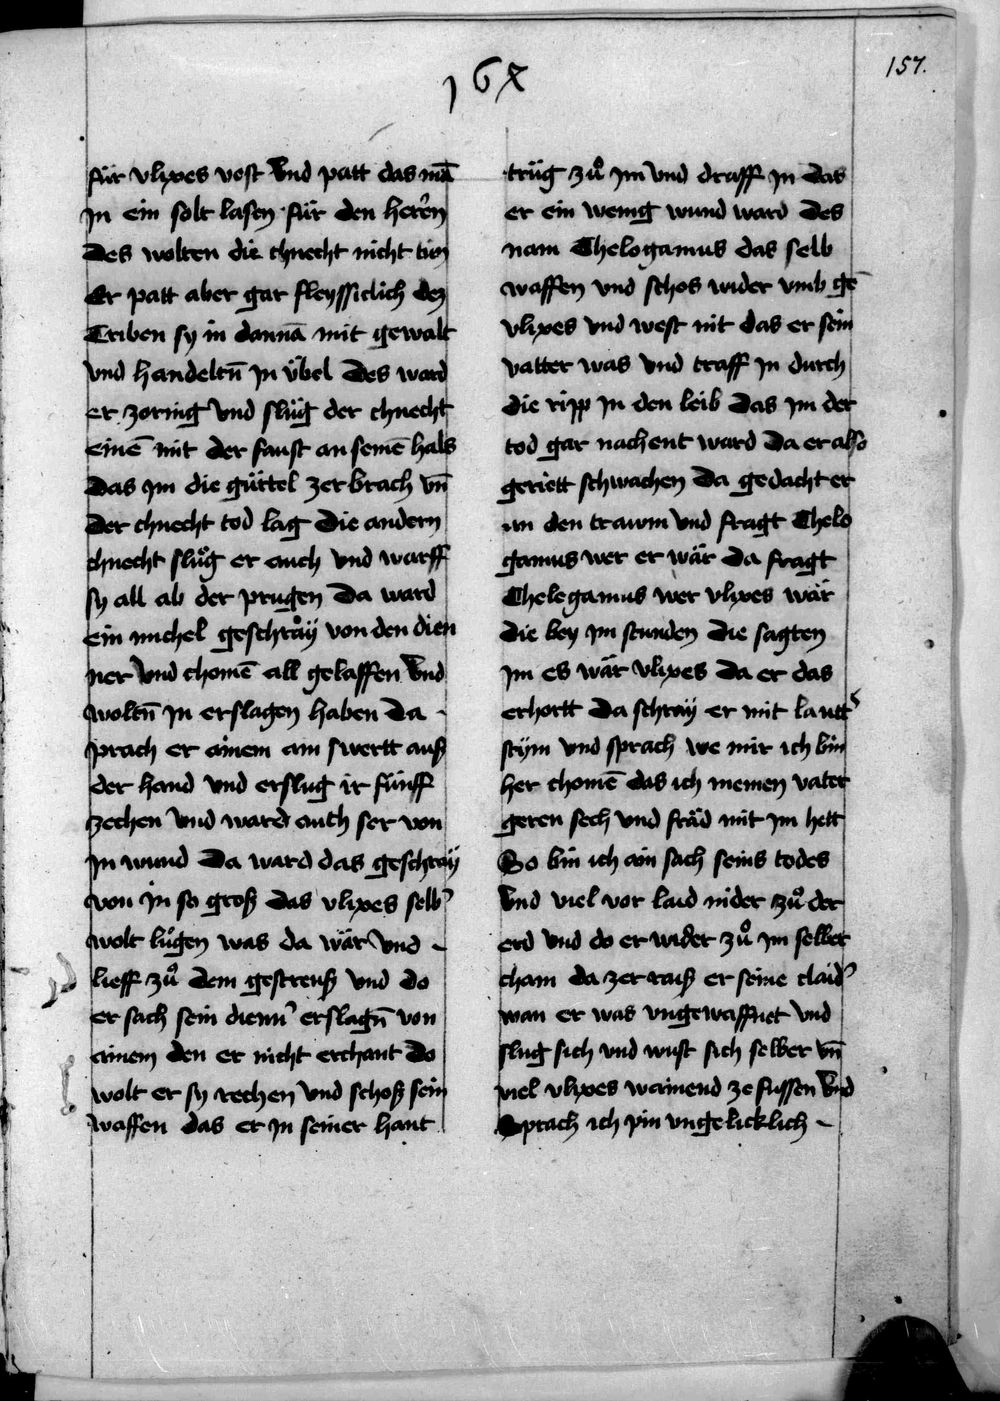 167
157.
für vlixes vost Vnd patt das mā
In ein solt lasen für den herr̄n
Des wolten die chnecht nicht tun
Er patt aber gar fleyssiclich dez
Triben sy in dannā mit gewalt
vnd handeltn̄ In v̈bel Des ward
er zornig vnd slu̇g der chnecht
einē mit der faust an seinē hals
Das Im die gürtel zerbrach vn̄
Der chnecht tod lag Die andern
chnecht slůg er auch vnd warff
sy all ab der prugen Da ward
ein michel geschray̆ von den dien
ner vnd chomē all gelaffen Vnd
woltn̄ In erslagen haben da
sprach er ainem ain swertt auß
der hand vnd erslug ir fünff
zechen vnd ward auch ser von
In wund Da ward das geschray
von In so groß das vlixes selb᾽
wolt lůgen was da wär vnd
lieff zů dem gestreuß vnd do
er sach sein dienn᾽ erslagn̄ von
ainem den er nicht erchant Do
wolt er sy rechen vnd schoß sein
waffen das er In seiner hant
trüg zů Im vnd draff In das
er ein wenig wund ward des
nam Thelogamus das selb
waffen vnd schos wider vmb gē
vlixes vnd west nit das er sein
vatter was vnd traff In durch
die ripp In den leib Das Im der
tod gar nachent ward Da er also
geriett schwachen Da gedacht er
an den trawm vnd fragt Thelo
gamus wer er wär da fragt
Thelegamus wer vlixes wär
die bey Im stunden Die sagten
Im es wär vlixes Da er das
erhortt Da schray er mit lautt᾽
stym vnd sprach we mir ich bin
her chomē das ich meinen vater
geren sech vnd fräd mit Im hett
So bin ich ain sach seins todes
Vnd viel vor laid nider zů der
erd vnd do er wider zů Im selber
cham da zerraiß er seine claid᾽
wan er was vngewaffnet vnd
slug sich vnd wust sich selber vn̄
viel vlixes wainend ze fussen Vnd
Sprach ich pin vngelicklich